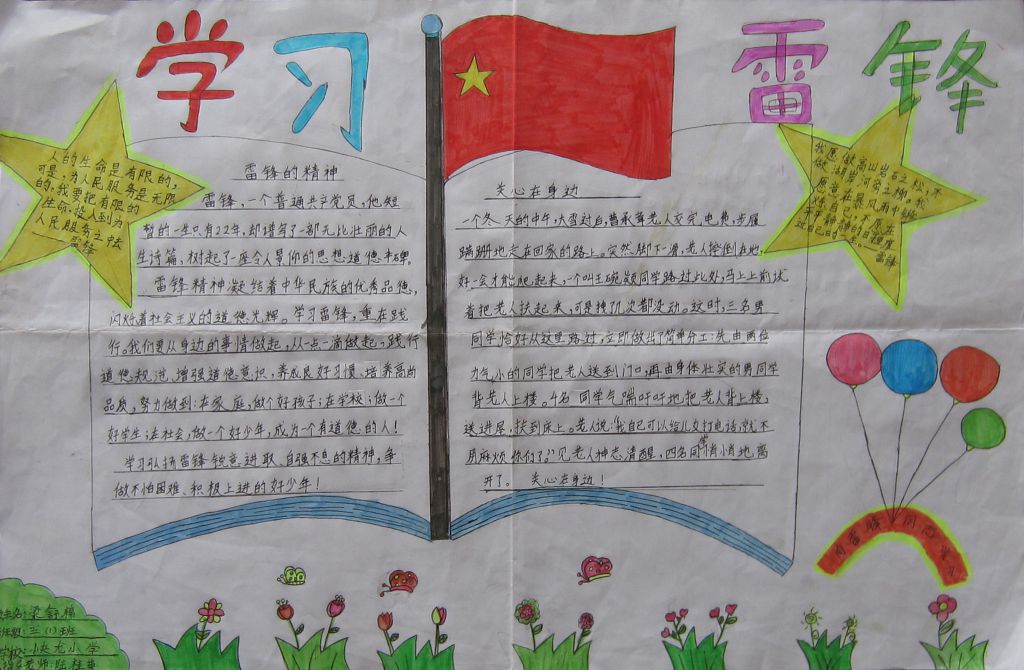 学习 雷锋
人的生命是有限的,
可是,为人民服务是无限
的,我要把有限的
生命,投入到为
人民服务之中去
——雷锋
雷锋的精神
雷锋,一个普通共产党员,他短
暂的一生只有22年,却谱写了一部无比壮丽的人
生诗篇,树起了一座令人景仰的思想道德丰碑。
雷锋精神凝结着中华民族的优秀品德,
闪烁着社会主义的道德光辉。学习雷锋,重在践
行。我们要从身边的事情做起,从一点一滴做起,践行
道德规范,增强道德意识,养成良好习惯,培养高尚
品质,努力做到:在家庭,做个好孩子;在学校;做一个
好学生;在社会,做一个好少年,成为一个有道德的人!
学习弘扬雷锋锐意进取、自强不息的精神,争
做不怕困难、积极上进的好少年!
关心在身边
一个冬天的中午,大雪过后,曹承尊老人交完电费,步履
蹒跚地走在回家的路上。突然脚下一滑,老人摔倒在地,
好一会才能爬起来,一个叫王琬凝同学路过此处,马上上前试
着把老人扶起来,可是拽几次都没动。这时,三名男
同学恰好从这里路过,立即做出了简单分工:先由两位
力气小的同学把老人送到门口,再由身体壮实的男同学
背老人上楼。4名同学气喘吁吁地把老人背上楼,
送进屋,扶到床上。老人说:“我自己可以给儿女打电话,就不
用麻烦你们了。”见老人神态清醒,四名同学悄悄地离
开了。 关心在身边!
我愿做高山岩石之松,不
做湖岸河旁之柳。我
愿意在暴风雨中锻
炼自己,不愿在
平平静静的日子里度
过自己的一生。——
雷锋
向雷锋同志学习
姓名:梁舒
班级:三(1)班
学校:小央尤小学